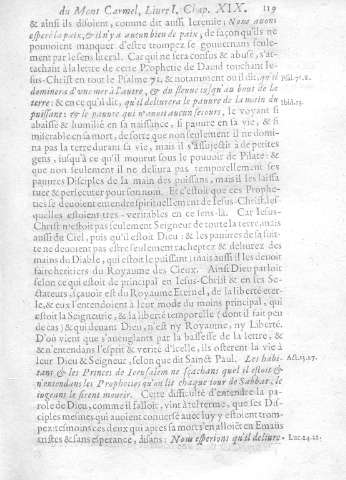 du Mont Carmel, Liure I. Chap. XIX. 119
& ainsi ils disoient, comme dit aussi Ieremie; Nous auons
esperé la paix, & il n'y a aucun bien de paix, de façon qu'ils ne
pouuoient manquer d'estre trompez se gouuernans seule-
ment par le sens literal. Car qui ne sera confus & abusé, s'at-
tachant à la lettre de cette Prophetie de Dauid touchant Ie-
sus-Christ en tout le Psalme 71. & notamment où il dit, qu'il
Psal. 71. 8.
dominera d'vne mer à l'autre, & du fleuue iusqu'au bout de la
terre: & en ce qu'il dit, qu'il deliurera le pauure de la main du
Ibid. 13.
puissant: & le pauure qui n'auoit aucun secours, le voyant si
abaissé & humilié en sa naissance, si pauure en sa vie, & si
miserable en sa mort, de sorte que non seulement il ne domi-
na pas la terre durant sa vie, mais il s'assujettit à de petites
gens, iusqu'à ce qu'il mourut sous le pouuoir de Pilate: &
que non seulement il ne deliura pas temporellement ses
pauures Disciples de la main des puissans, mais il les laissa
tuer & persecuter pour son nom. Et c'estoit que ces Prophe-
ties se deuoient entendre spirituellement de Iesus-Christ, les-
quelles estoient tres-veritables en ce sens-là. Car Iesus-
Christ n'estoit pas seulement Seigneur de toute la terre, mais
aussi du Ciel, puis qu'il estoit Dieu: & les pauures de sa sui-
te ne deuoient pas estre seulement rachetez & deliurez des
mains du Diable, qui estoit le puissant; mais aussi il les deuoit
faire heritiers du Royaume des Cieux. Ainsi Dieu parloit
selon ce qui estoit de principal en Iesus-Christ & en ses Se-
ctateurs, sçauoir est du Royaume Eternel, de la liberté eter-
le, & eux l'entendoient à leur mode du moins principal, qui
estoit la Seigneurie, & la liberté temporelle (dont il fait peu
de cas) & qui deuant Dieu, n'est ny Royaume, ny Liberté.
D'où vient que s'aueuglants par la bassesse de la lettre, &
& n'entendans l'esprit & verité d'icelle, ils osterent la vie à
leur Dieu & Seigneur, selon que dit Sainct Paul. Les habi-
Act. 13. 27.
tans & les Princes de Ierusalem ne sçachans quel il estoit &
n'entendans les Propheties qu'on lit chaque iour de Sabbat, le
iugeans le firent mourir. Cette difficulté d'entendre la pa-
role de Dieu, comme il falloit, vint à tel terme, que ses Dis-
ciples mesmes qui auoient conuersé auec luy y estoient trom-
pez tesmoins ces deux qui apres sa mort s'en alloient en Emaüs
tristes & sans esperance, disans: Nous esperions qu'il deliure-
Luc. 24. 21.